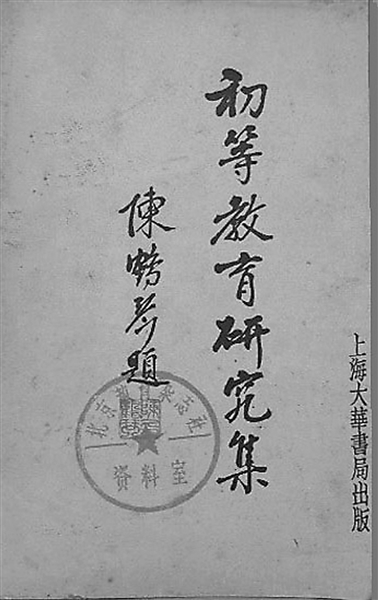 初等教育研究集
陳鶴琴題
上海大華書局出版
資料室